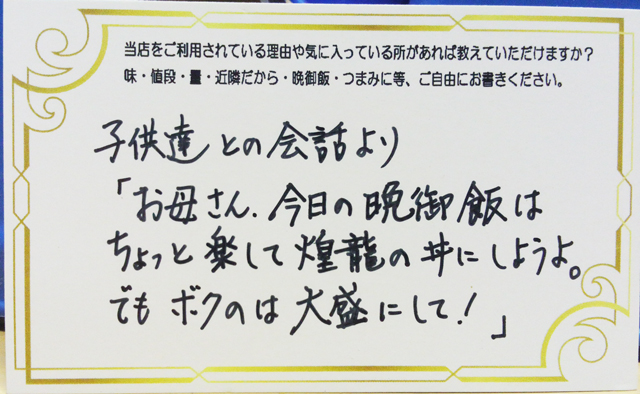 当店をご利用されている理由や気に入っている所があれば教えていただけますか？
味・値段・量・近隣だから・晩御飯・つまみに等、ご自由にお書きください。
子供達との会話より
「お母さん、今日の晩御飯は
ちょっと楽して煌龍の丼にしようよ。
でもボクのは大盛にして！」